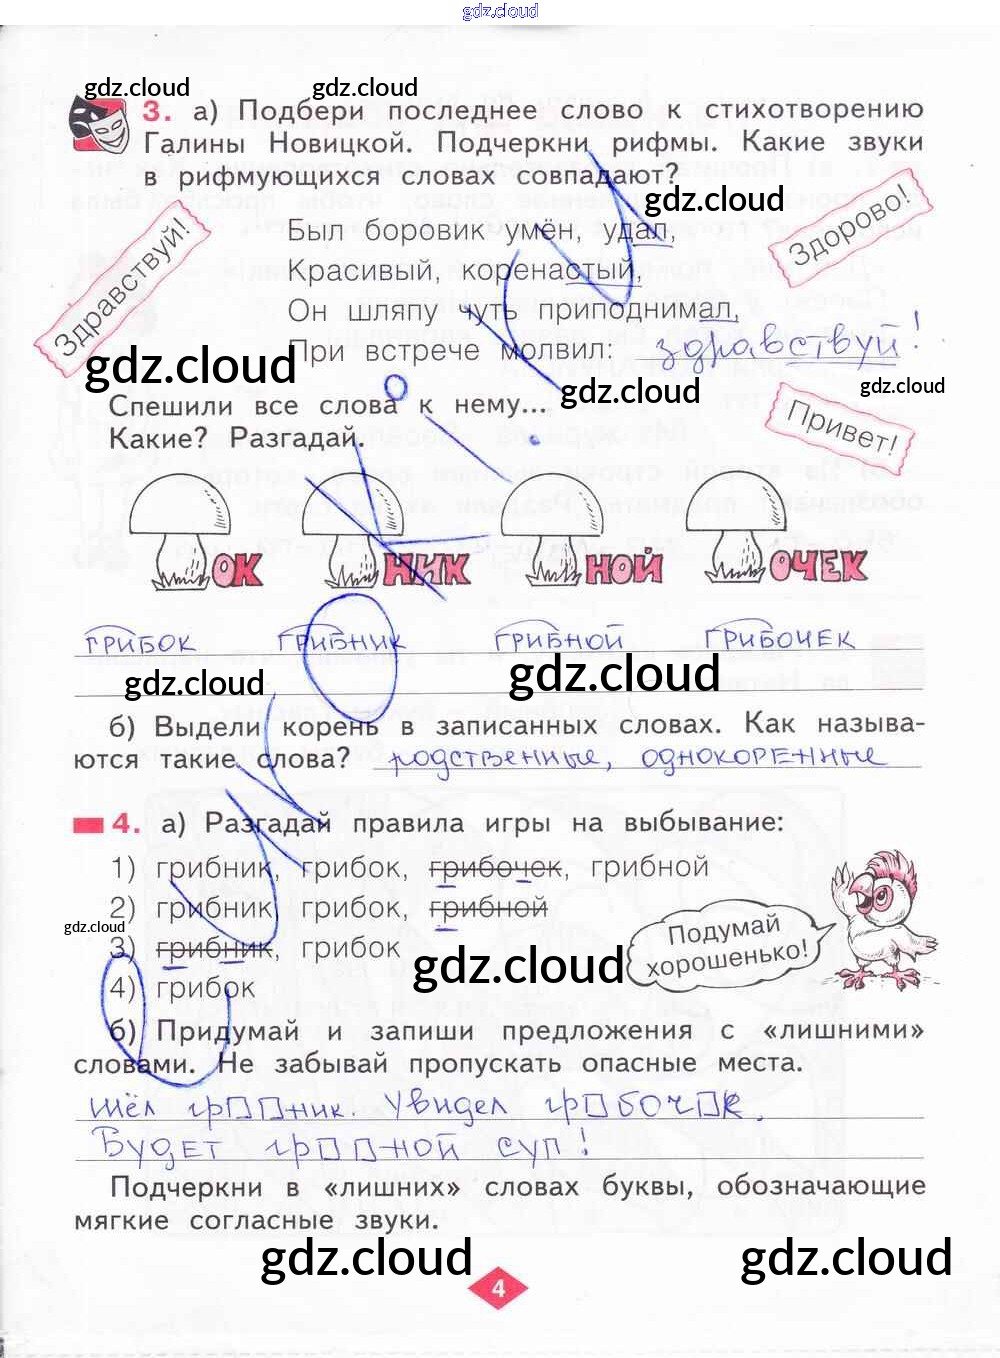 gdz.cloud
gdz.cloud gdz.cloud
3. а) Подбери последнее слово к стихотворению
Галины Новицкой. Подчеркни рифмы. Какие звуки
в рифмующихся словах совпадают?
gdz.cloud
Здравствуй!
Здорово!
Был боровик умён, удал,
Красивый, коренастый,
Он шляпу чуть приподнимал,
При встрече молвил: здравствуй!
gdz.cloud
gdz.cloud
gdz.cloud
Привет!
Спешили все слова к нему...
Какие? Разгадай.
ОК НИК НОЙ ОЧЕК
ГРИБОК ГРИБНИК ГРИБНОЙ ГРИБОЧЕК
gdz.cloud
gdz.cloud
б) Выдели корень в записанных словах. Как называ-
ются такие слова? родственные, однокоренные
4. а) Разгадай правила игры на выбывание:
1) грибник, грибок, грибочек, грибной
2) грибник, грибок, грибной
gdz.cloud
3) грибник, грибок
gdz.cloud
Подумай
хорошенько!
4) грибок
б) Придумай и запиши предложения с «лишними»
словами. Не забывай пропускать опасные места.
Шёл гр□□ник. Увидел гр□боч□к.
Будет гр□□ной суп!
Подчеркни в «лишних» словах буквы, обозначающие
мягкие согласные звуки.
gdz.cloud gdz.cloud
4